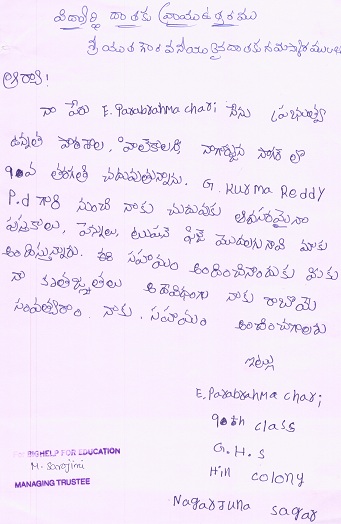 విద్యార్థి దాతకు వ్రాయు ఉత్తరము
శ్రీయుత గౌరవనీయులైన దాతకు నమస్కారములు
నా పేరు E. Parabrahma chari నేను ప్రభుత్వ
ఉన్నత పాఠశాల, నాగార్జున సాగర్ లో
10వ తరగతి చదువుతున్నాను. G. Kurma Reddy
P.d గారి నుంచి నాకు చదువుకు అవసరమైన
పుస్తకాలు, పెన్నులు, ట్యూషన్ ఫీజు మొదలగునవి మాకు
అందిస్తున్నారు. ఈ సహాయం అందించినందుకు మీకు
నా కృతజ్ఞతలు అదేవిధంగా నాకు రాబోయే
సంవత్సరం నాకు సహాయం అందించగలరు
ఇట్లు
E. Parabrahma chari
10th class
G.H.S
Hill colony
Nagarjuna sagar
For BIGHELP FOR EDUCATION
M. Sarojini
MANAGING TRUSTEE